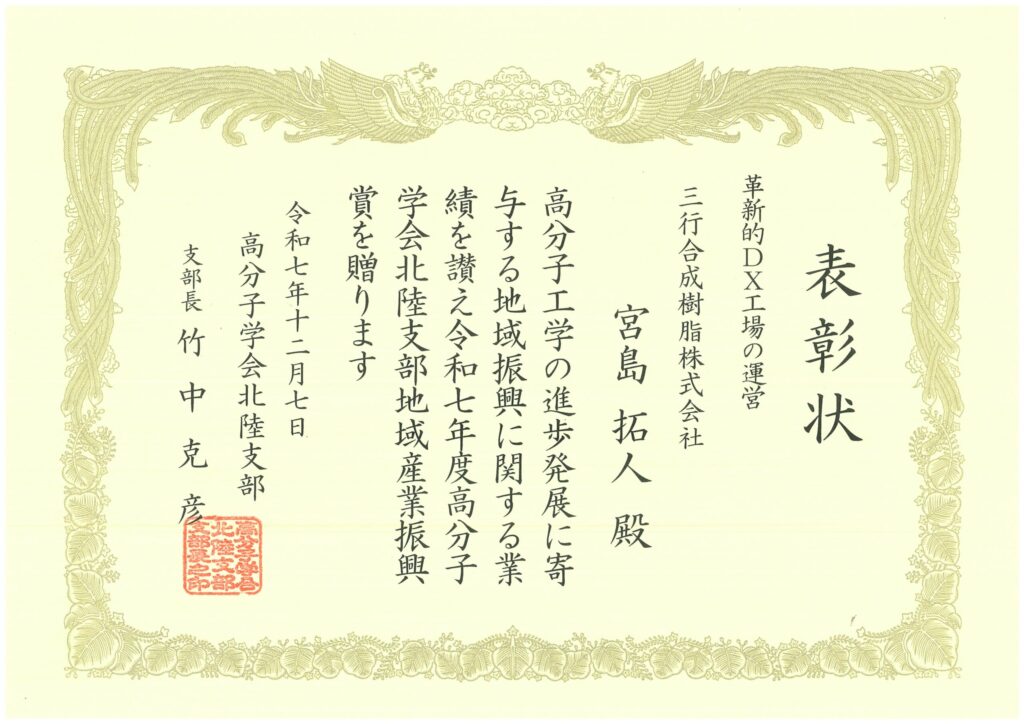 表彰状
革新的DX工場の運営
三行合成樹脂株式会社
宮島 拓人 殿
高分子工学の進歩発展に寄
与する地域振興に関する業
績を讃え令和七年度高分子
学会北陸支部地域産業振興
賞を贈ります
令和七年十二月七日
高分子学会北陸支部
支部長 竹中克彦
高分子学会
北陸支部
支部長之印